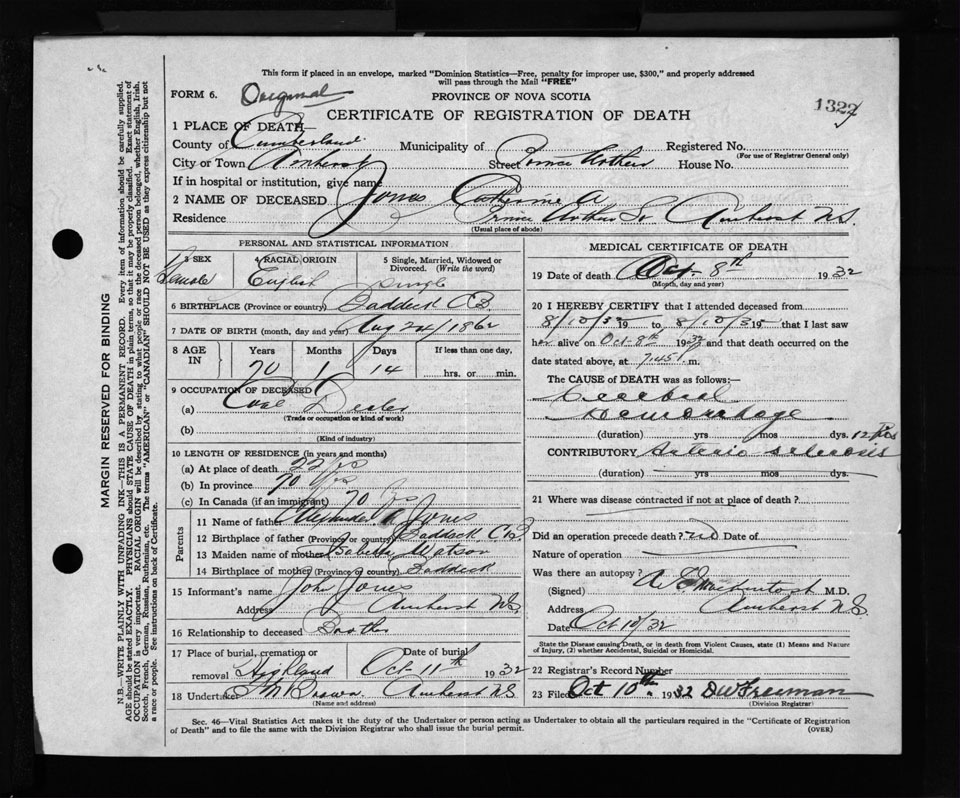 This form if placed in an envelope, marked "Dominion Statistics—Free, penalty for improper use, $300," and properly addressed
will pass through the Mail "FREE"
FORM 6. Original PROVINCE OF NOVA SCOTIA
CERTIFICATE OF REGISTRATION OF DEATH 1322
1 PLACE OF DEATH—
County of Cumberland Municipality of Registered No.
(For use of Registrar General only)
City or Town Amherst Street Prince Arthur House No.
If in hospital or institution, give name
2 NAME OF DECEASED Jones Catherine A
Residence Prince Arthur St Amherst N.S.
(Usual place of abode)
PERSONAL AND STATISTICAL INFORMATION
3 SEX 4 RACIAL ORIGIN 5 Single, Married, Widowed or
Divorced. (Write the word)
Female English Single
6 BIRTHPLACE (Province or country) Baddeck C.B.
7 DATE OF BIRTH (month, day and year) Aug 24/1862
8 AGE IN Years Months Days If less than one day,
70 1 14 hrs. or min.
9 OCCUPATION OF DECEASED
(a) Coal Dealer
(Trade or occupation or kind of work)
(b)
(Kind of industry)
10 LENGTH OF RESIDENCE (in years and months)
(a) At place of death 22 yrs
(b) In province 70 yrs
(c) In Canada (if an immigrant) 70 yrs
Parents
11 Name of father Alexander Jones
12 Birthplace of father (Province or country) Baddeck C.B.
13 Maiden name of mother Isabella Watson
14 Birthplace of mother (Province or country) Baddeck
15 Informant's name John Jones
Address Amherst N.S
16 Relationship to deceased Brother
17 Place of burial, cremation or Date of burial
removal Highland Oct 11th 1932
18 Undertaker Brown Amherst N.S
(Name and address)
MEDICAL CERTIFICATE OF DEATH
19 Date of death Oct. 8th 1932
(Month, day and year)
20 I HEREBY CERTIFY that I attended deceased from
8/10/32 19 to 8/10/32 19 that I last saw
her alive on Oct 8th 1932 and that death occurred on the
date stated above, at 7.45 m.
The CAUSE of DEATH was as follows:—
Cerebral
Hemorrhage
(duration) yrs mos dys. 12 hrs
CONTRIBUTORY Arterio sclerosis
(duration) yrs mos dys.
21 Where was disease contracted if not at place of death?
Did an operation precede death? no Date of
Nature of operation
Was there an autopsy?
(Signed) A E Mackintosh M.D.
Address Amherst N.S.
Date Oct 10/32
State the Disease Causing Death, or in death from Violent Causes, state (1) Means and Nature
of Injury, (2) whether Accidental, Suicidal or Homicidal.
22 Registrar's Record Number
23 Filed Oct 10th 1932 D W Freeman
(Division Registrar)
Sec. 46—Vital Statistics Act makes it the duty of the Undertaker or person acting as Undertaker to obtain all the particulars required in the "Certificate of Registration
of Death" and to file the same with the Division Registrar who shall issue the burial permit. (OVER)
MARGIN RESERVED FOR BINDING
N.B.—WRITE PLAINLY WITH UNFADING INK—THIS IS A PERMANENT RECORD. Every item of information should be carefully supplied.
AGE should be stated EXACTLY. PHYSICIANS should STATE CAUSE OF DEATH in plain terms, so that it may be properly classified. Exact statement of
OCCUPATION is very important. RACIAL ORIGIN will be described by stating to what people or race the deceased person belonged, whether English, Irish,
Scotch, French, German, Russian, Ruthenian, etc. The terms "AMERICAN" or "CANADIAN" SHOULD NOT BE USED as they express citizenship but not
a race or people. See instructions on back of Certificate.